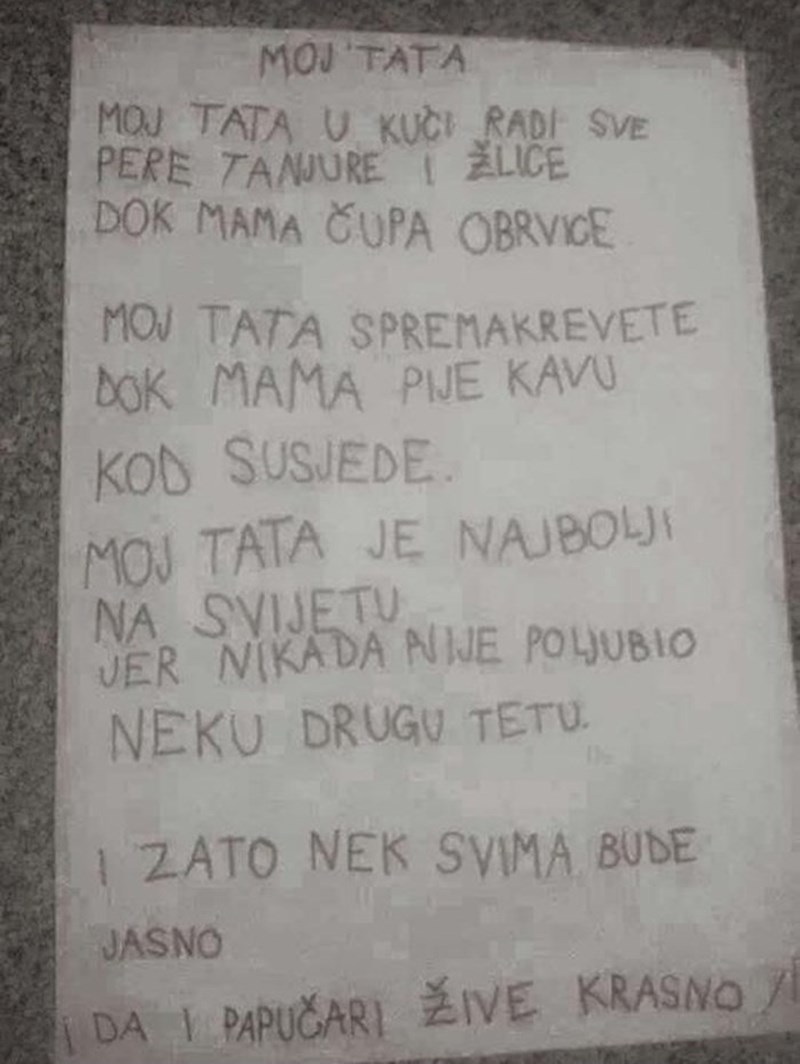 MOJ TATA
MOJ TATA U KUČI RADI SVE
PERE TANJURE I ŽLICE
DOK MAMA ČUPA OBRVICE
MOJ TATA SPREMAKREVETE
DOK MAMA PIJE KAVU
KOD SUSJEDE.
MOJ TATA JE NAJBOLJI
NA SVIJETU
JER NIKADA NIJE POLJUBIO
NEKU DRUGU TETU.
I ZATO NEK SVIMA BUDE
JASNO
DA I PAPUČARI ŽIVE KRASNO